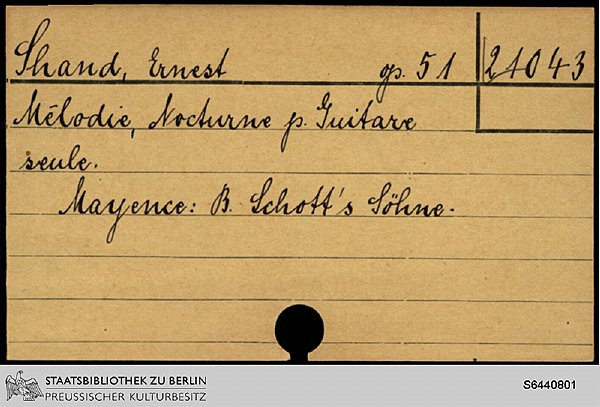 Shand, Ernest op. 51 21043
Mélodie, Nocturne p. Guitare
seule.
Mayence: B. Schott's Söhne.
STAATSBIBLIOTHEK ZU BERLIN
PREUSSISCHER KULTURBESITZ
S6440801